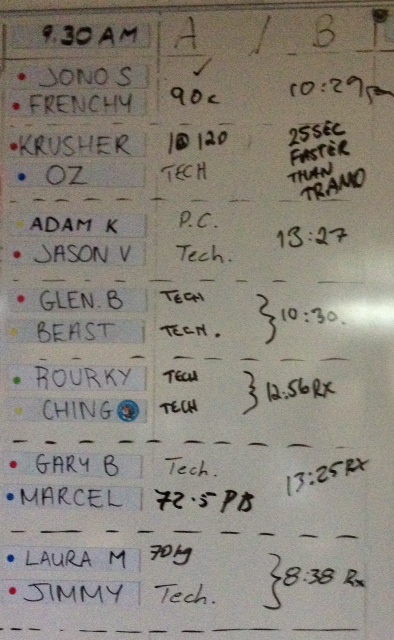 9.30 AM A / B
JONO S ✓
FRENCHY 90c 10:29
KRUSHER 1@120 25SEC
FASTER
OZ TECH THAN
TRAMO
ADAM K P.C.
JASON V Tech. 13:27
GLEN.B TECH
BEAST TECH. } 10:30.
ROURKY TECH
CHING TECH } 12:56 RX
GARY B Tech.
MARCEL 72.5 PB 13:25 RX
LAURA M 70kg
JIMMY Tech. } 8:38 Rx